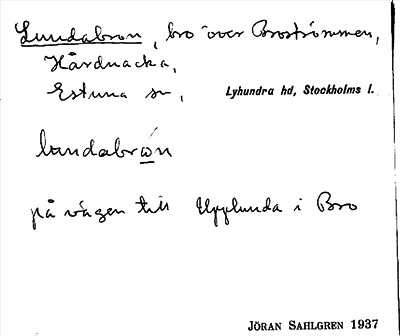 Lundabron, bro över Broströmmen,
Hårdnacka,
Estuna sn, Lyhundra hd, Stockholms l.
lundabrώ̲n
på vägen till Upplunda i Bro
JÖRAN SAHLGREN 1937